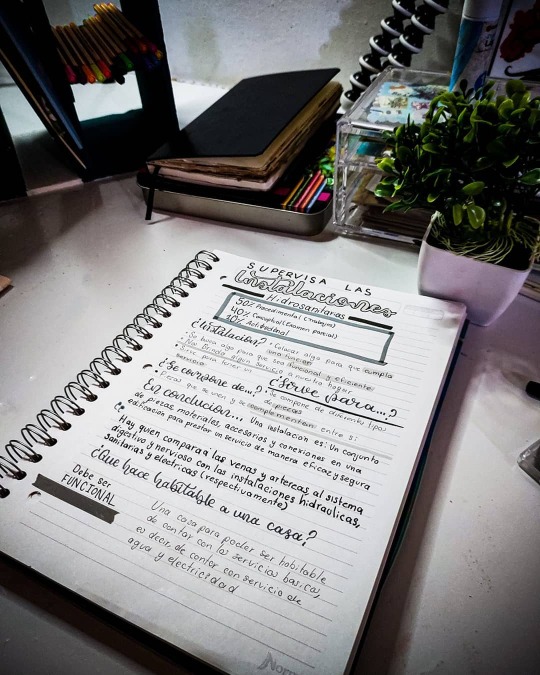 SUPERVISA LAS
Instalaciones
Hidrosanitarias
50% Procedimental (trabajos)
40% Conceptual (Examen parcial)
10% Actitudinal
¿Instalación? • Colocar algo para que cumpla
una función
algo para que sea funcional y eficiente
• Nos Brinda algún servicio a nuestro hogar
servicio
¿Se compone de...? ¿Sirve para...?
Se compone de diferentes tipos
de piezas
• Piezas que se unen y se complementan entre sí
En conclusión... Una instalación es: Un conjunto
de piezas, materiales, accesorios y conexiones en una
edificación para prestar un servicio de manera eficaz y segura
Hay quien compara a las venas y arterias, al sistema
digestivo y nervioso con las instalaciones hidraulicas,
sanitarias y electricas (respectivamente)
¿Que hace habitable a una casa?
Debe ser
FUNCIONAL
Una casa para poder ser habitable
de contar con los servicios basico,
es decir, de contar con servicio de
agua y electricidad
Norma